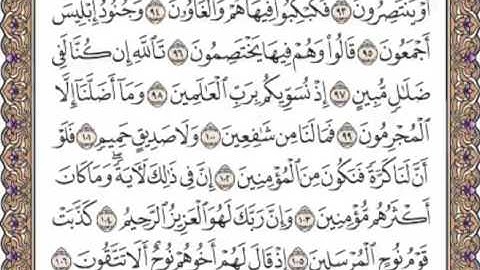 أَوْ يَنتَصِرُونَ ٩٣ فَكُبْكِبُوا۟ فِيهَا هُمْ وَٱلْغَاوُۥنَ ٩٤ وَجُنُودُ إِبْلِيسَ
أَجْمَعُونَ ٩٥ قَالُوا۟ وَهُمْ فِيهَا يَخْتَصِمُونَ ٩٦ تَٱللَّهِ إِن كُنَّا لَفِى
ضَلَٰلٍ مُّبِينٍ ٩٧ إِذْ نُسَوِّيكُم بِرَبِّ ٱلْعَٰلَمِينَ ٩٨ وَمَآ أَضَلَّنَآ إِلَّا
ٱلْمُجْرِمُونَ ٩٩ فَمَا لَنَا مِن شَٰفِعِينَ ١٠٠ وَلَا صَدِيقٍ حَمِيمٍ ١٠١ فَلَوْ
أَنَّ لَنَا كَرَّةً فَنَكُونَ مِنَ ٱلْمُؤْمِنِينَ ١٠٢ إِنَّ فِى ذَٰلِكَ لَءَايَةً ۖ وَمَا كَانَ
أَكْثَرُهُم مُّؤْمِنِينَ ١٠٣ وَإِنَّ رَبَّكَ لَهُوَ ٱلْعَزِيزُ ٱلرَّحِيمُ ١٠٤ كَذَّبَتْ
قَوْمُ نُوحٍ ٱلْمُرْسَلِينَ ١٠٥ إِذْ قَالَ لَهُمْ أَخُوهُمْ نُوحٌ أَلَا تَتَّقُونَ ١٠٦